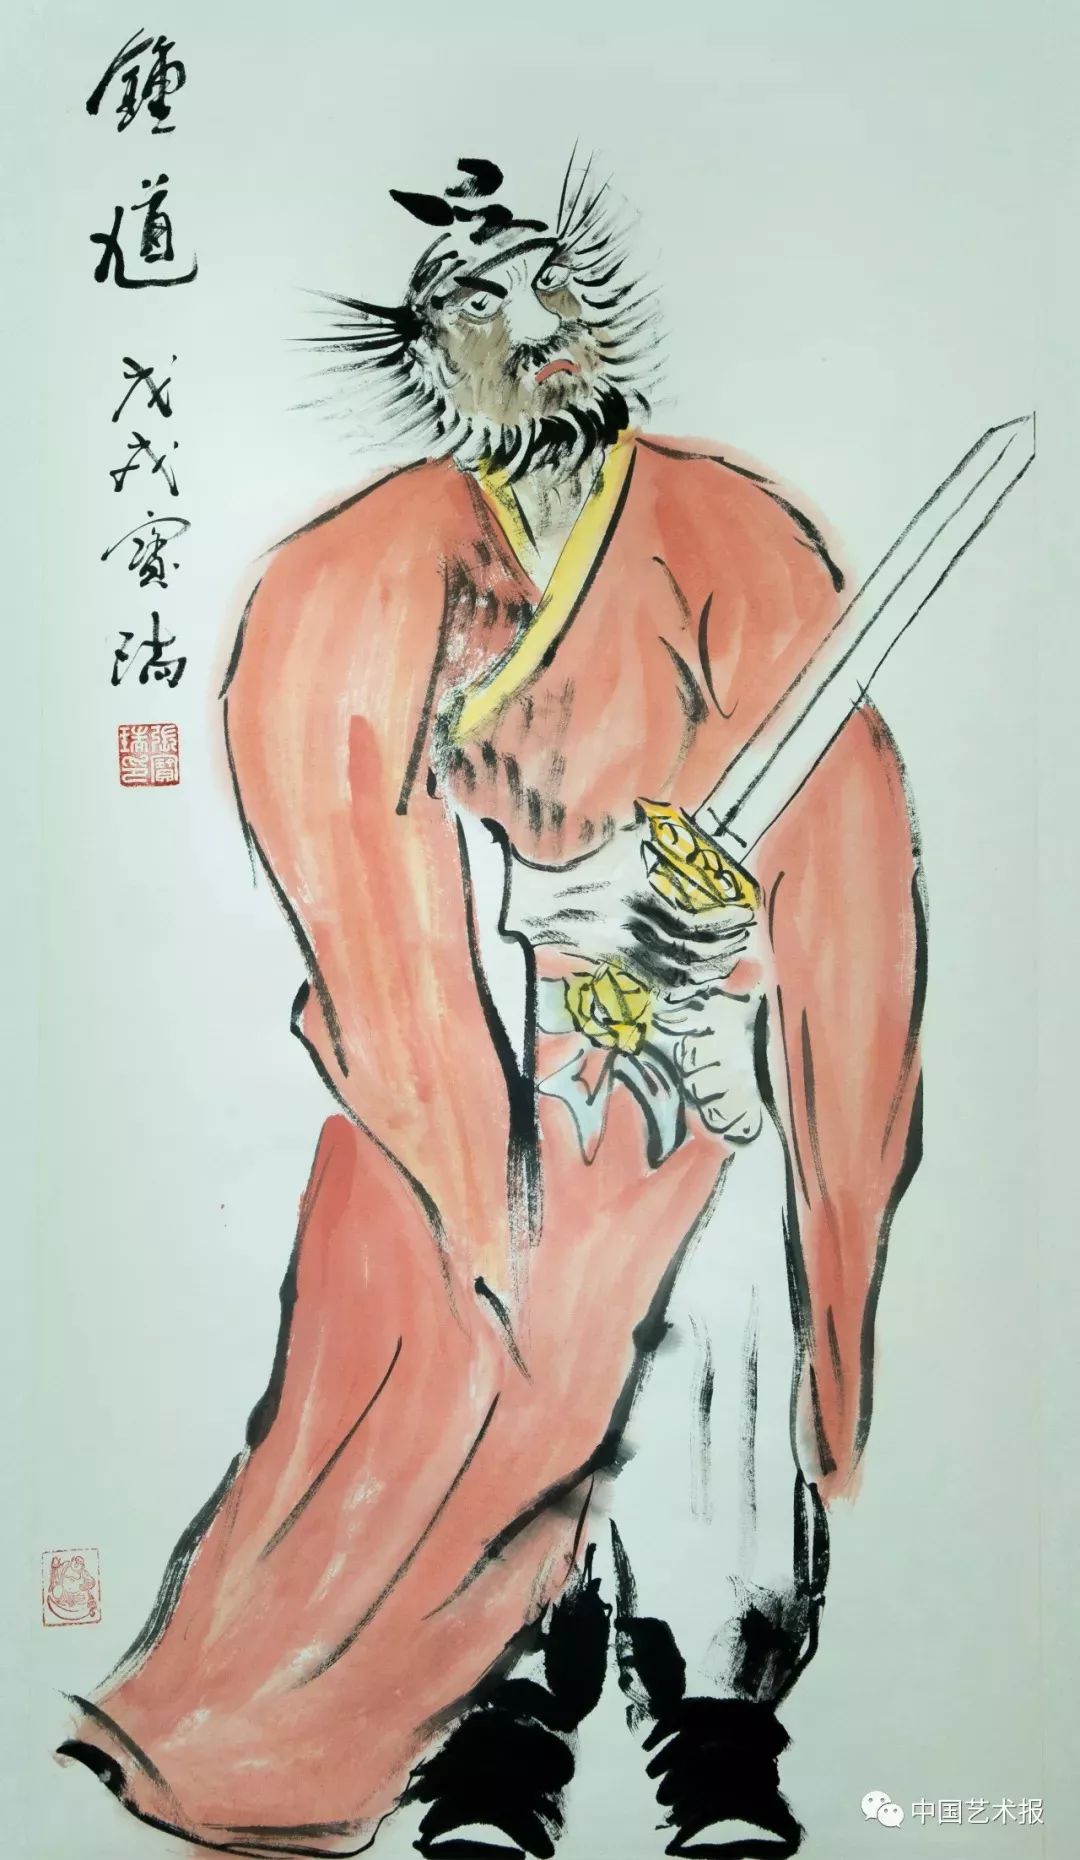 鍾馗 戊戌 寶瑞
張寶瑞印
中国艺术报